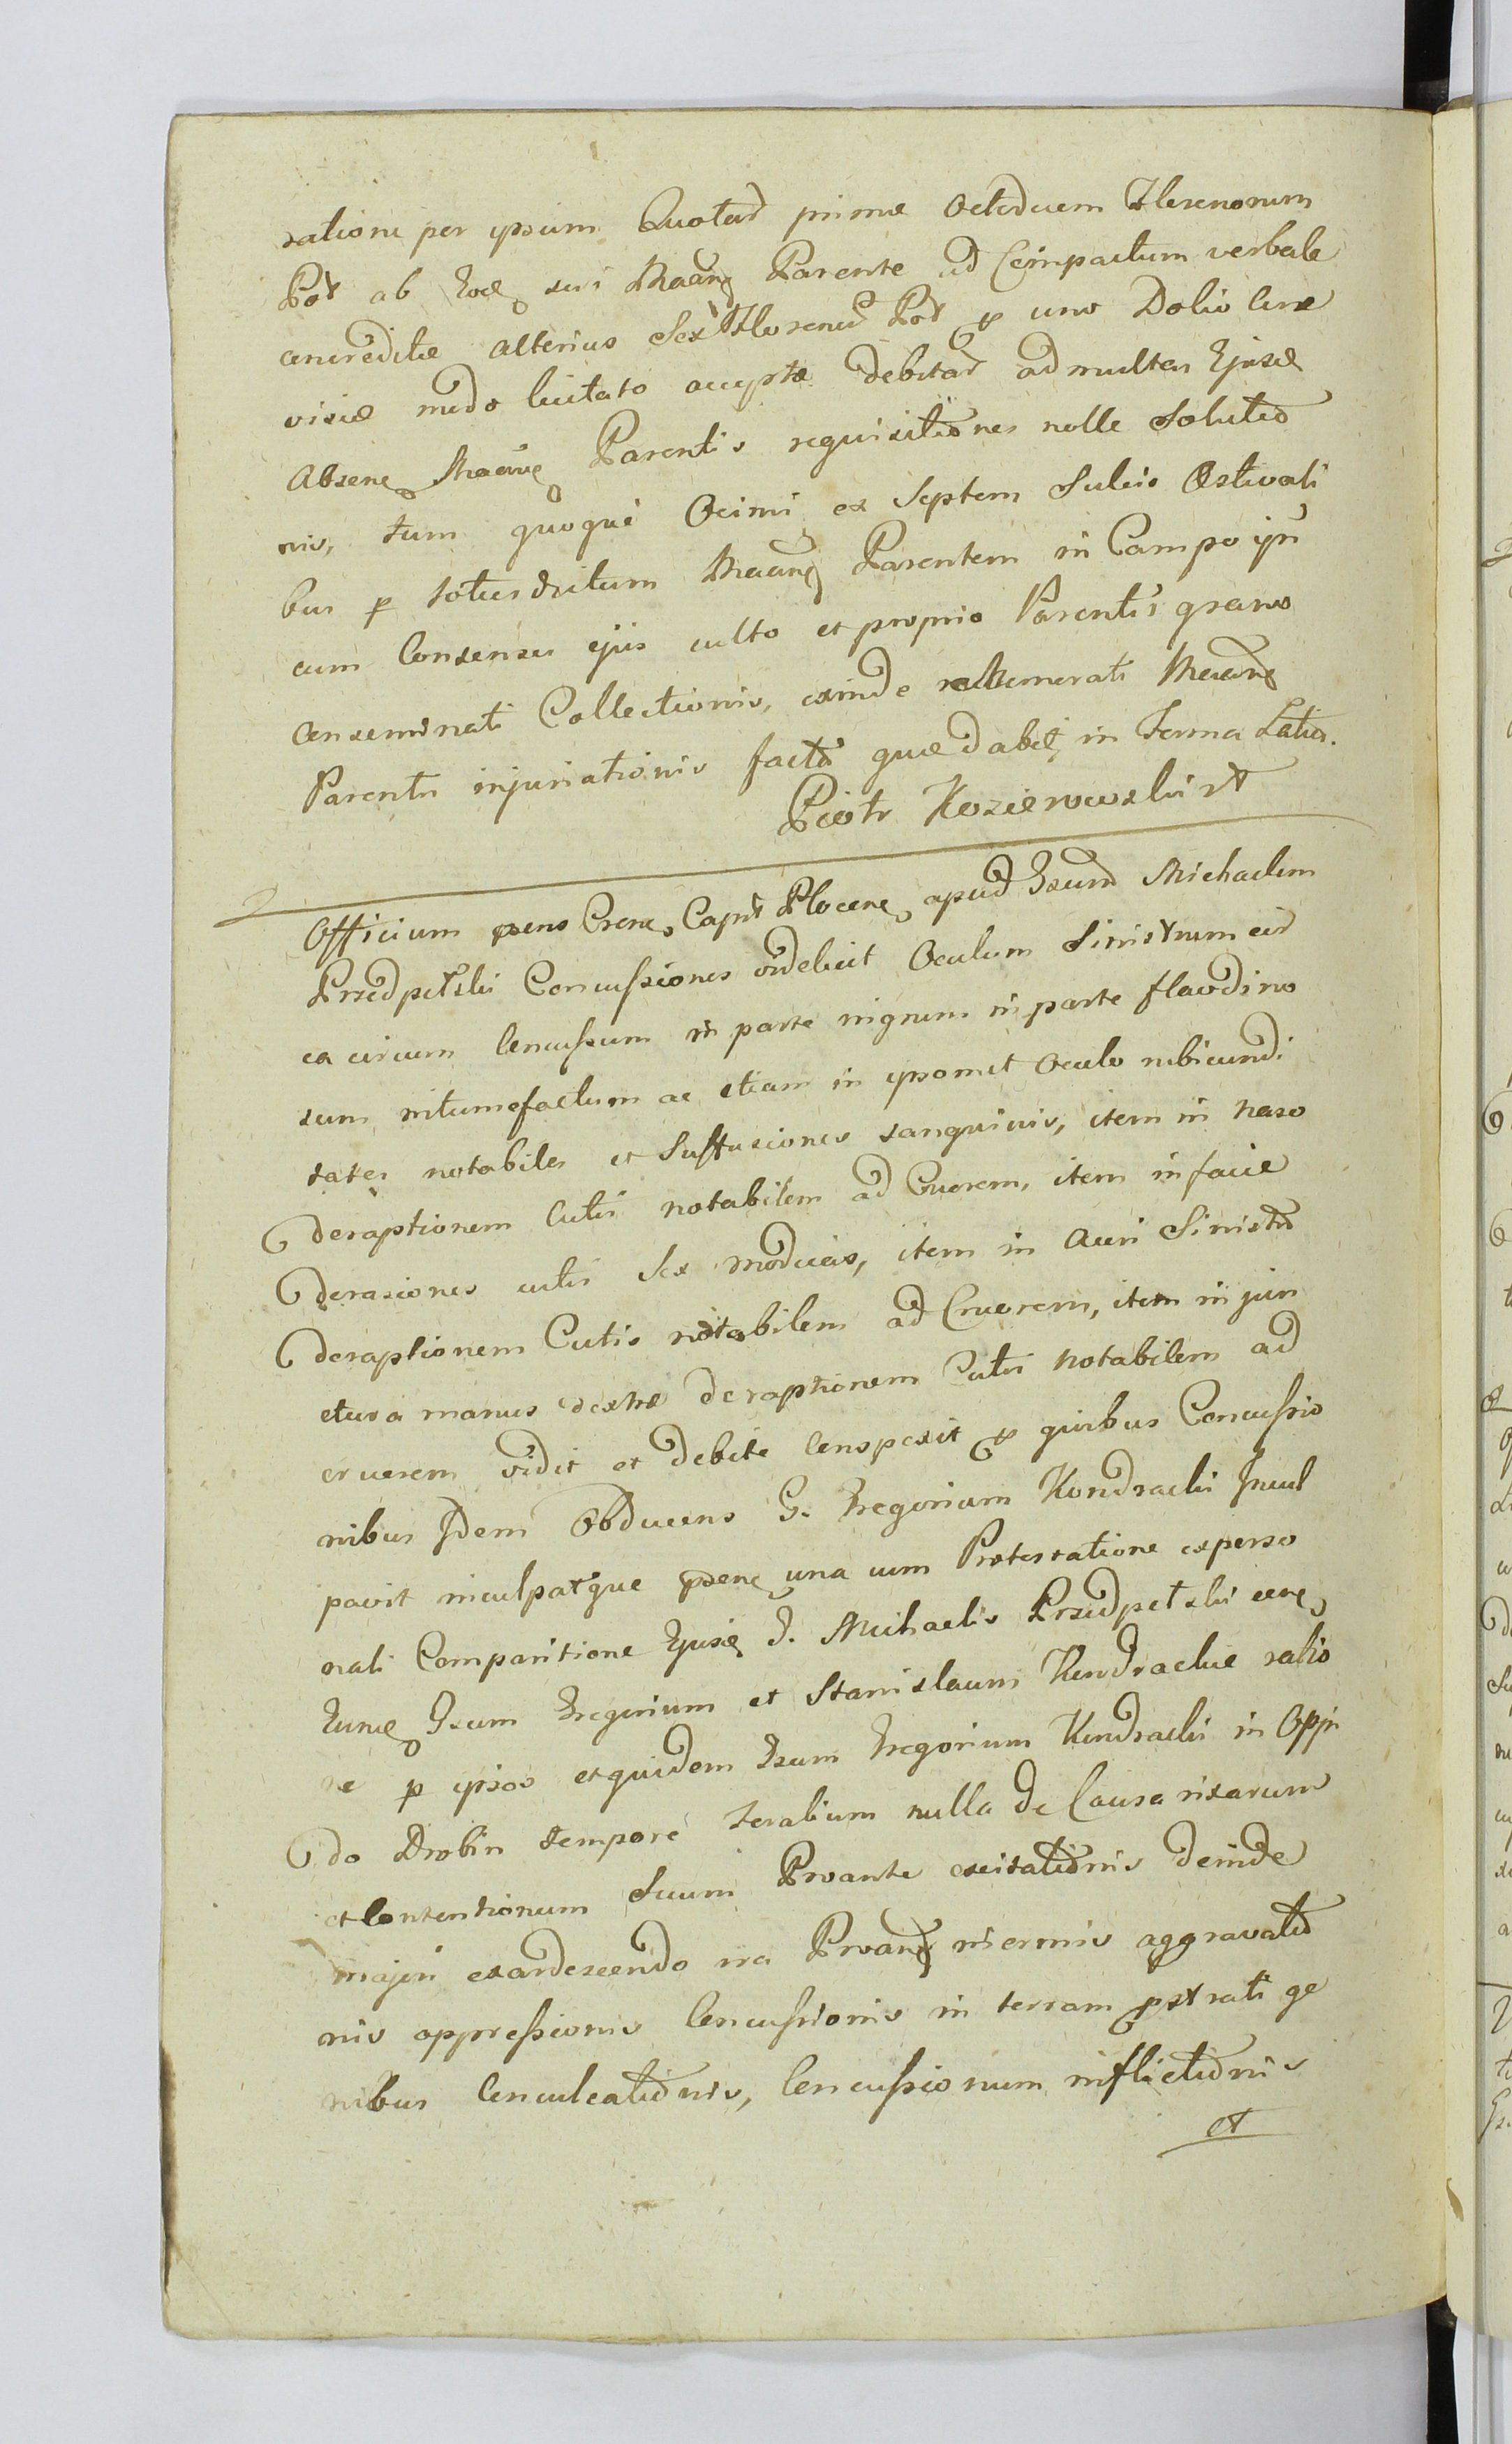 ratione per ipsum Quotar primæ octoduem Florenorum
Pol ab eod sui Maang Parente ad Compactum verbale
concreditæ alterius Sex Florenor Pol p uno Dolio Cere
visiæ modo licitato acceptæ debitar ad multas Ejusd
Absene Maang Parentis requisitiones nolle Solutio
nis, tum quoque Ocimi ex Septem Sulcis Æstivali
bus p totiesdictum Maang Parentem in Campo ipsi
cum Consensu ejus culto et proprio Parentis grano
Conseminati Collectionis, exinde Maang
Parentis injuriationis facta quæ dabit in Forma Latior.
Piotr Kozierowski
Officium psens Crene Capit Plocene apud Gsum Michaelem
Przedpelski Concussiones videlicet Oculum Sinistrum cir
ca circum Concussum in parte nigrum in parte flavedino
sum intumefactum ac etiam in ipsomet Oculo rubicundi
tates notabiles et Suffusiones sanguinis, item in naso
deraptionem Cutis notabilem ad Cruorem, item in facie
derasiones cutis Sex modicas, item in Auri Sinistra
deraptionem Cutis notabilem ad Cruorem, item in jun
ctura manus dextræ deraptionem Cutis notabilem ad
cruorem vidit et debite Conspexit p quibus Concussio
nibus Idem Obducens G. Gregorium Kondracki Incul
pavit inculpatque psene una cum Protestatione ex perso
nali Comparitione Ejusd G. Michaelis Przedpelski cone
Eunde Gsum Gregorium et Stanislaum Kondrackie ratio
ne p ipsos et quidem Gsum Gregorium Kondracki in Oppi
do Drobin tempore Feralium nulla de Causa rixarum
et Contentionum Suum Proante excitationis deinde
majori exardescendo ira Proang inermis aggravatio
nis oppressionis Concussionis in terram pstrati ge
nibus Conculcationis, Concussionum inflictionis
et